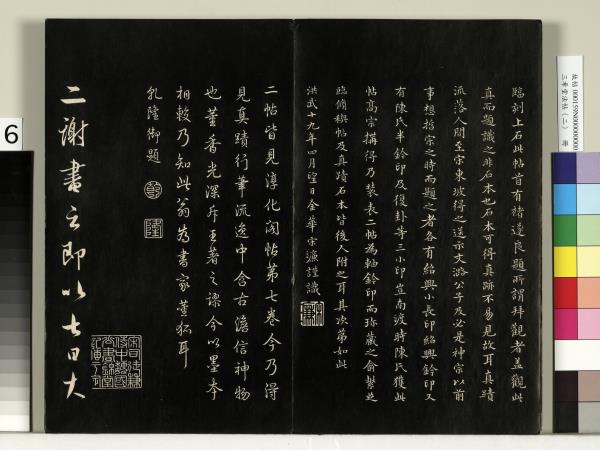 臨刻上石此帖首有褚遂良題所謂拜觀者蓋觀此
真而題識之非石本也石本可得真跡不易見故耳真蹟
流落人間至宋東坡得之送示文潞公子及必是神宗以前
事想哲宗之時而題之者各有紹興小長印紹興鈐印又
有陳氏半鈐印及復卦等三小印豈南渡時陳氏獲此
帖高宗購得乃裝表二帖為軸鈐印而珍藏之俞
臨脩禊帖及真蹟石本皆後人附之耳其次第如此
洪武十九年四月望日金華宋濂謹識
二帖皆見淳化閣帖第七卷今乃得
見真蹟行筆流逸中含古澹信神物
也董香光深斥王著之謬今以墨本
相較乃知此翁為書家董狐耳
乾隆御題
乾
隆
二謝書云即以七日大
6
故帖 000159N000000000
三希堂法帖（二） 冊